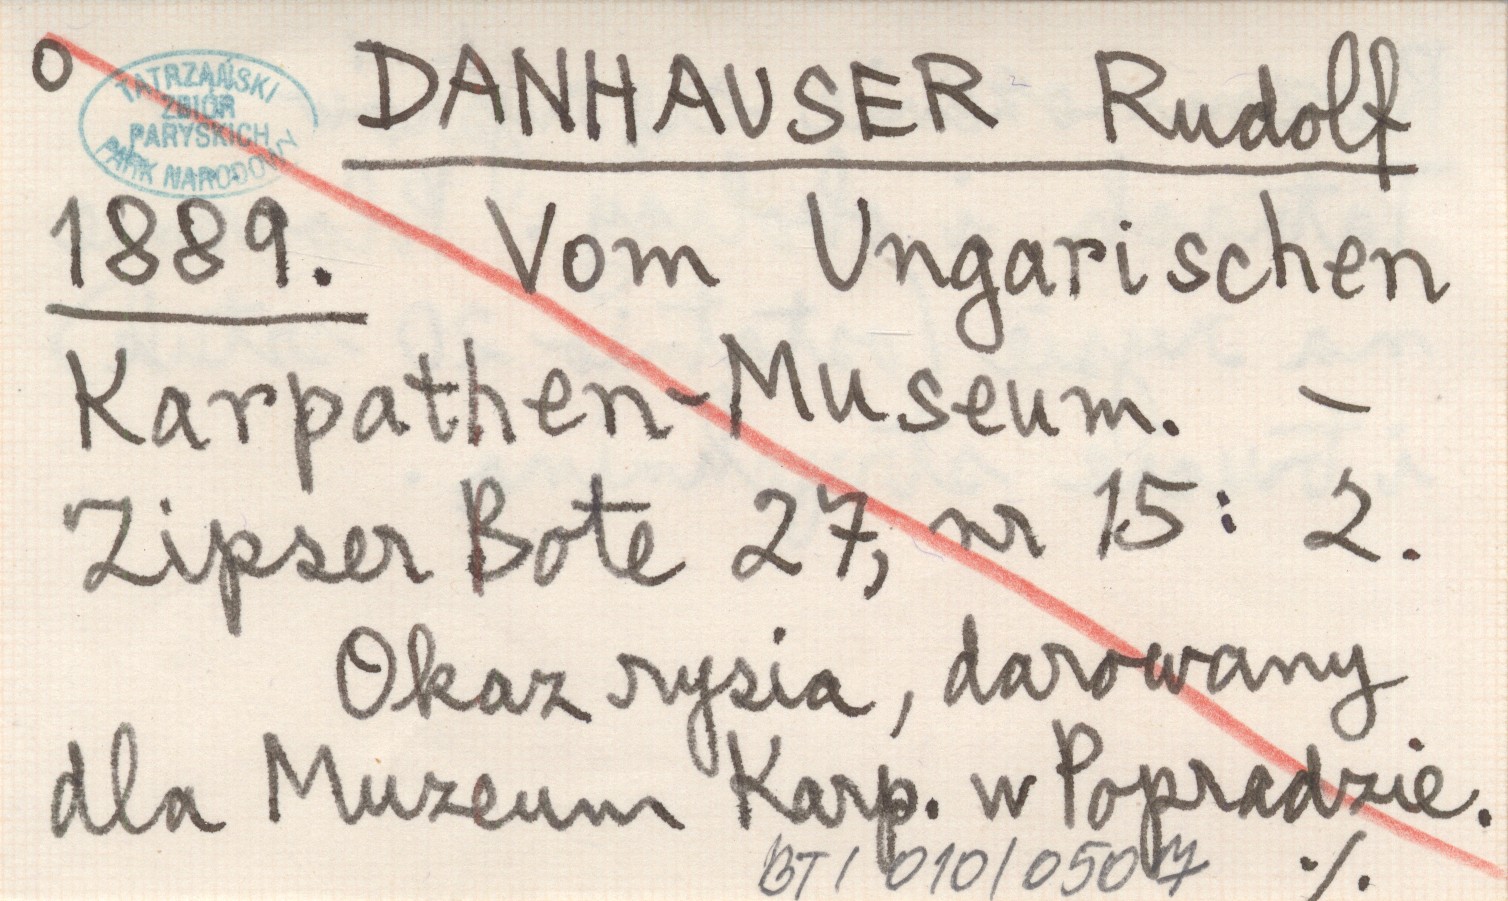 o
TATRZAŃSKI
ZBIÓR
PARYSKICH
PARK NARODOWY
DANHAUSER Rudolf
1889. Vom Ungarischen
Karpathen-Museum. –
Zipser Bote 27, nr 15: 2.
Okaz rysia, darowany
dla Muzeum Karp. w Popradzie.
BT/010/05017
./.